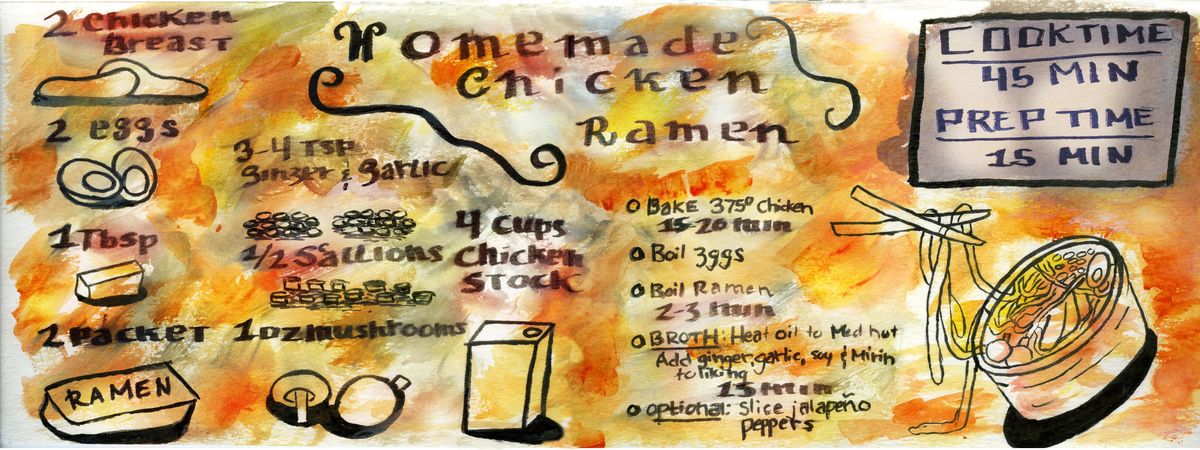 2 Chicken
Breast
2 eggs
1 Tbsp
2 Packet
RAMEN
3-4 TSP
Ginger & Garlic
1/2 Scallions
1 oz mushrooms
4 Cups
Chicken
STOCK
Homemade
Chicken
Ramen
BAKE 375° Chicken
15-20 min
Boil 3ggs
Boil Ramen
2-3 min
BROTH: Heat oil to Med hut
Add ginger, garlic, soy & Mirin
to liking
15 min
optional: Slice jalapeño
peppers
COOKTIME
45 MIN
PREP TIME
15 MIN